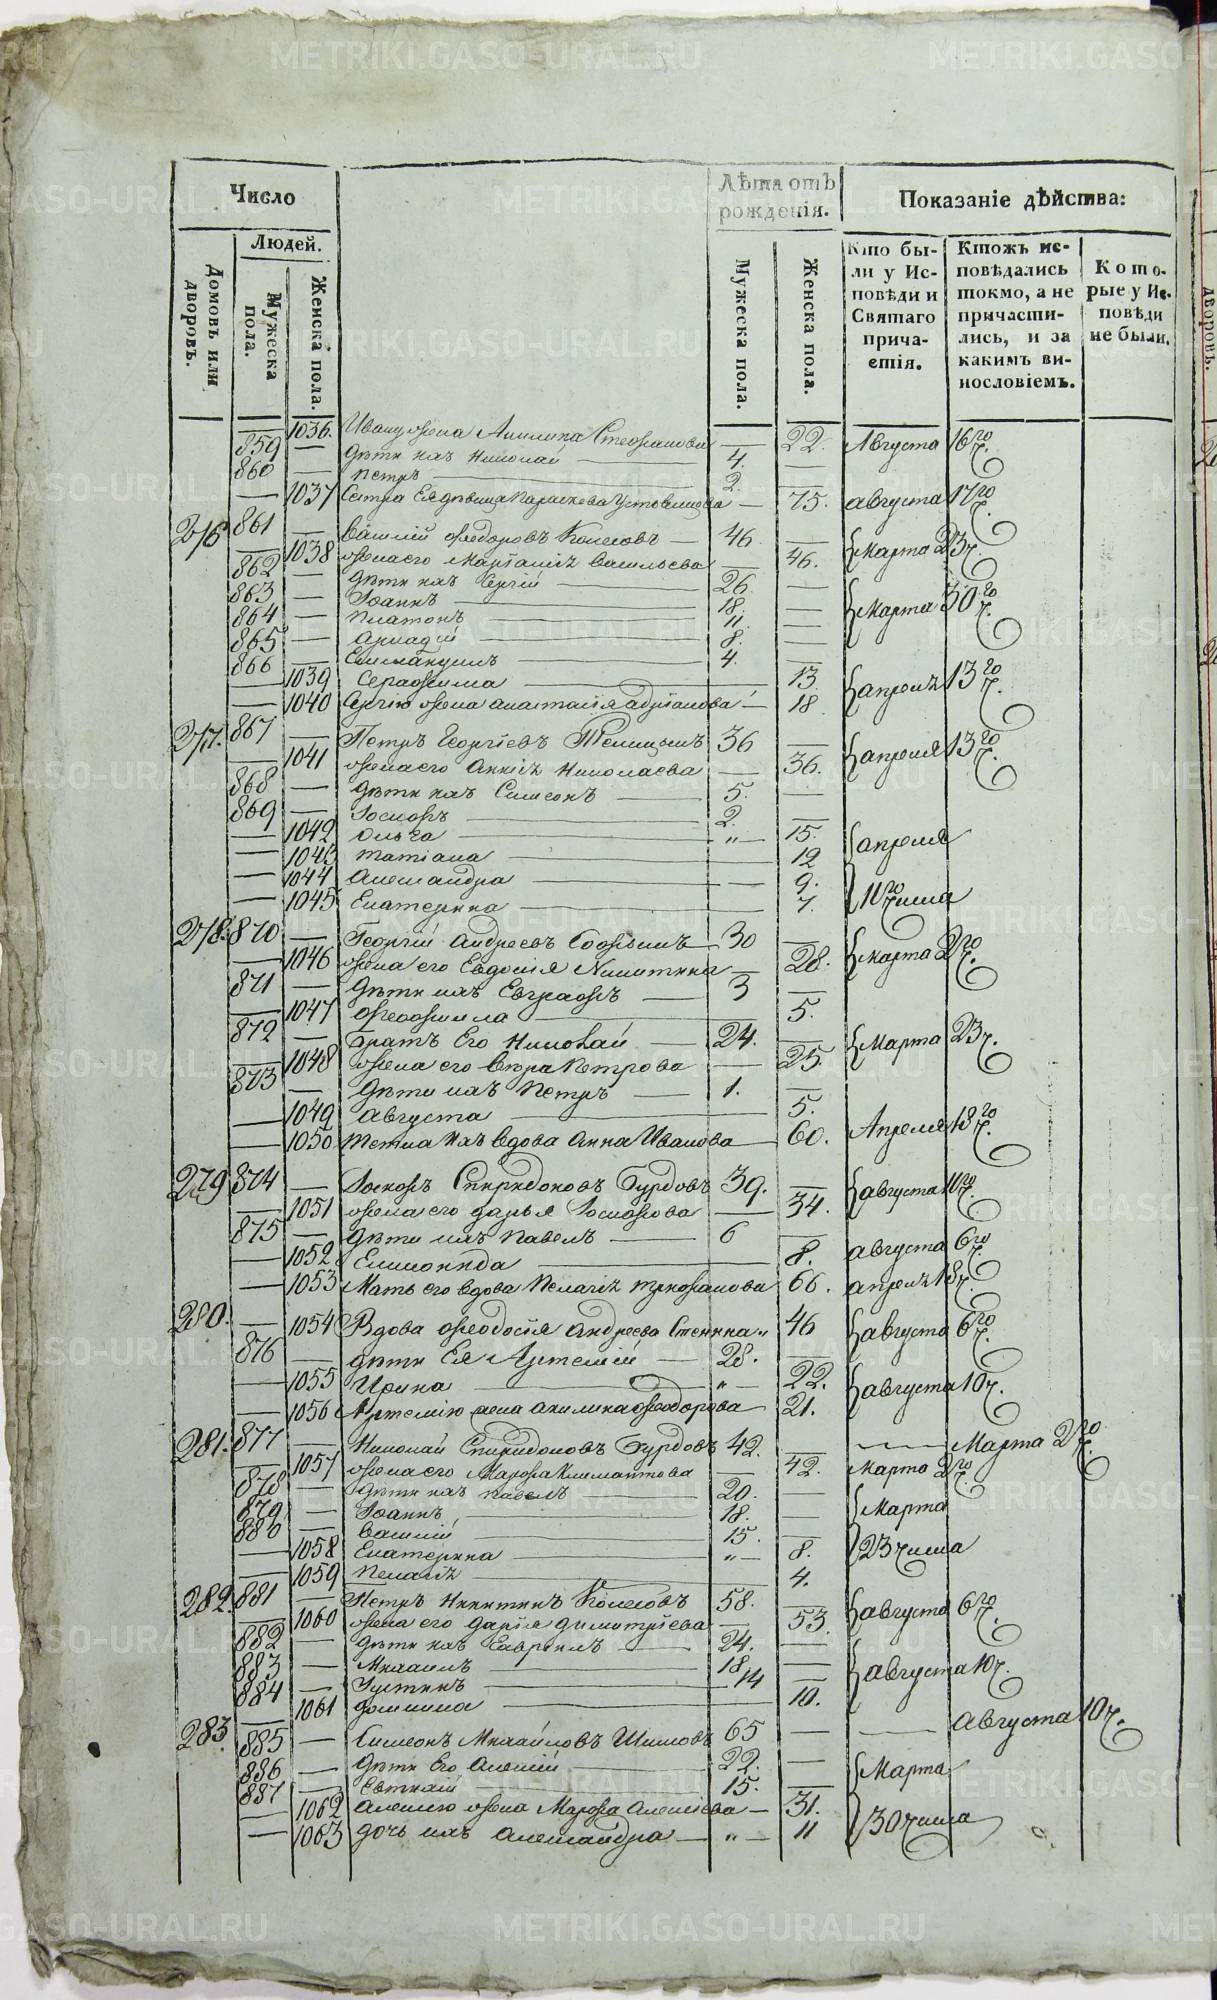 Число
Лѣта отъ рожденія.
Показаніе дѣйства:
Домовъ или дворовъ.
Людей.
Мужеска пола.
Женска пола.
Мужеска пола.
Женска пола.
Кто бы-
ли у Ис-
повѣди и
Святаго
прича-
стія.
Ктожъ ис-
повѣдались
токмо, а не
причасти-
лись, и за
какимъ ви-
нословіемъ.
Кото-
рые у Ис-
повѣди
не были.
1036. Ивану жена 22. Августа 16го ч.
859 — дѣти ихъ Николай — 4.
860 — Петръ — 2.
— 1037 Сестра Ея дѣвица Параскева Устовщикова — 75. августа 17го ч.
276 861 — Василій Ѳеодоровъ Колесовъ — 46 Марта 23 ч.
— 1038 жена его Маріамія Васильева — 46.
862 — дѣти ихъ Сергій — 26
863 — Іоаннъ — 18. Марта 30го ч.
864 — Платонъ — 11
865 — Аркадій — 8.
866 — — 4.
— 1039 Серафима — 13 апреля 13го ч.
— 1040 Сергію жена Анастасія Адріанова — 18
277. 867 — Петръ Георгіевъ Телицынъ 36 апреля 13го ч.
— 1041 жена его Аннія Николаева — 36.
868 — дѣти ихъ Симеонъ — 5.
869 — Іосифъ — 2.
— 1042 Ольга — „ — 15. апреля
— 1043 Татіана — 12
— 1044 Александра — 9. 10го числа
— 1045 Екатерина — 7.
278. 870 — Георгій Андреевъ — 30 марта 2го ч.
— 1046 жена его Евдокія Никитина — 28.
871 — дѣти ихъ Евграфъ — 3
— 1047 Ѳеофилла — 5.
872 — братъ Его Николай — 24. Марта 23 ч.
— 1048 жена его Вѣра Петрова — 25.
873 — дѣти ихъ Петръ — 1.
— 1049 Августа — 5.
— 1050 тетка ихъ вдова Анна Иванова — 60. Апреля 18го ч.
279 874 — Іосифъ Спиридоновъ Бурдовъ 39. августа 10го ч.
— 1051 жена его Дарья Іосифова — 34.
875 — дѣти ихъ Павелъ — 6
— 1052 — 8. августа 6го ч.
— 1053 Мать его вдова Пелагія Трифанова 66. апреля 18 ч.
280. — 1054 Вдова Ѳеодосія Андреева Стенина „ 46 августа 6го ч.
876 — дѣти Ея Артемій — 28.
— 1055 Ирина — „ — 22. августа 10 ч.
— 1056 Артемію жена Акилина Ѳеодорова — 21.
281. 877 — Николай Спиридоновъ Бурдовъ 42. — Марта 2го ч.
— 1057 жена его Марфа Климантова — 42. Марта 2го ч.
878 — дѣти ихъ Павелъ — 20.
879 — Іоаннъ — 18. Марта
880 — Василій — 15.
— 1058 Екатерина — „ — 8. 23 числа
— 1059 Пелагія — 4.
282. 881 — Петръ Никитинъ Колесовъ 58. августа 6го ч.
— 1060 жена его Дарія Димитріева — 53.
882 — дѣти ихъ Гавріилъ — 24.
883 — Михаилъ — 18 августа 10 ч.
884 — Іустинъ — 14
1061 Домника — 10.
283. 885 — Симеонъ Михайловъ Шиловъ 65 — — Августа 10 ч.
886 — дѣти Его Алексій — 22. — Марта
887 — Евтихій — 15.
— 1062 Алексію жена Марфа Алексіева — 31. 30 числа
— 1063 дочь ихъ Александра — „ — 11
дворовъ.